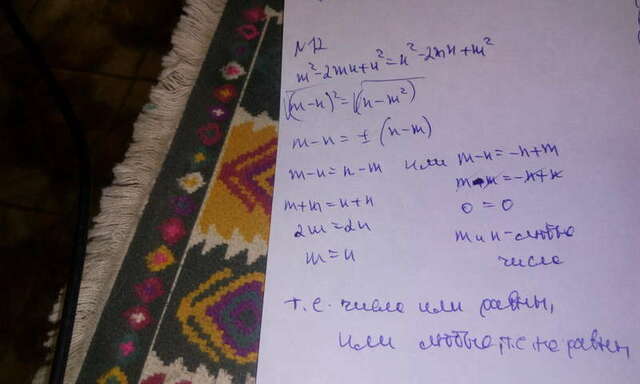 N12
m²-2mn+n²=n²-2mn+m²
√(m-n)²=√(n-m²)
m-n=±(n-m)
m-n=n-m или m-n=-n+m
m+m=n+n m-m=-n+n
2m=2n 0=0
m=n m и n-любые
числа
т.е. числа или равны,
или любые, т.е. не равны